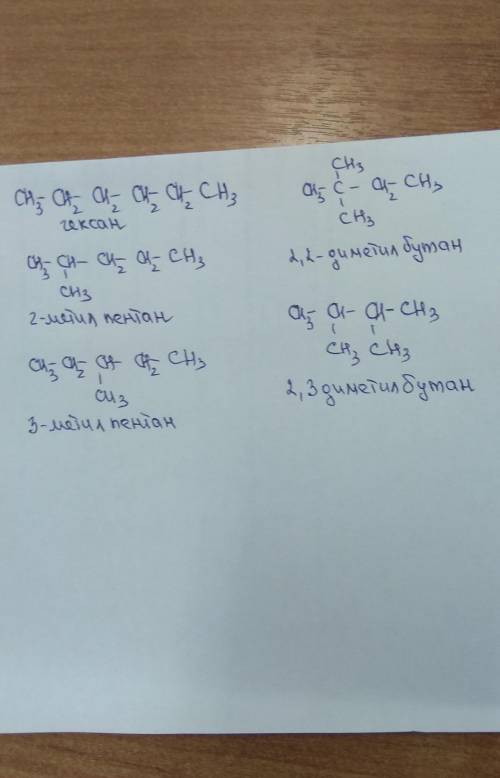 CH3- CH2- CH2- CH2- CH2- CH3
гексан
CH3- CH- CH2- CH2- CH3
CH3
2-метил пентан
CH3- CH2- CH- CH2- CH3
CH3
3-метил пентан
CH3
CH3- C- CH2- CH3
CH3
2,2-диметил бутан
CH3- CH- CH- CH3
CH3 CH3
2,3 диметил бутан